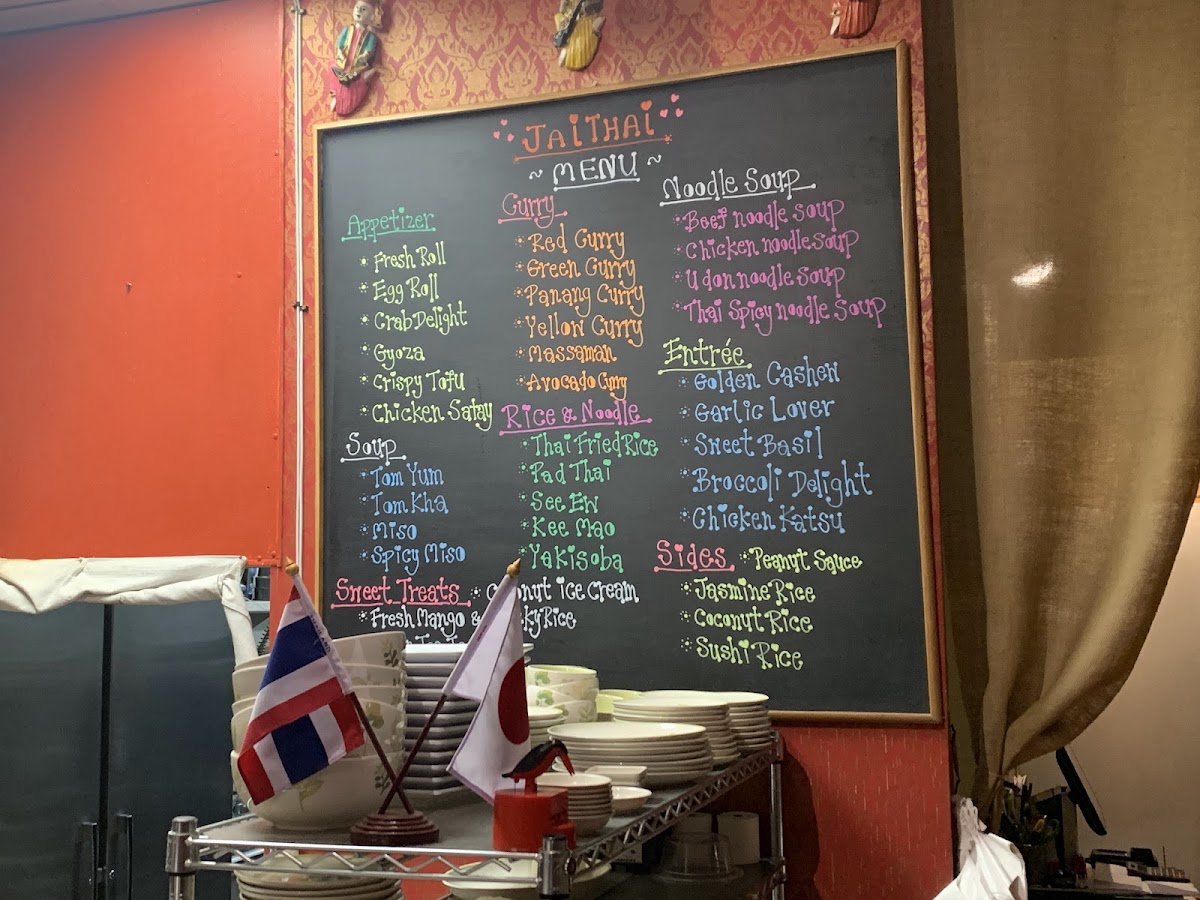 JAITHAI
~ MENU ~
Appetizer
Fresh Roll
Egg Roll
Crab Delight
Gyoza
Crispy Tofu
Chicken Satay
Soup
Tom Yum
Tom Kha
Miso
Spicy Miso
Sweet Treats
Fresh Mango &
Curry
Red Curry
Green Curry
Panang Curry
Yellow Curry
Massaman
Avocado Curry
Rice & Noodle
Thai Fried Rice
Pad Thai
See Ew
Kee Mao
Yakisoba
ice Cream
Rice
Noodle Soup
Beef noodle soup
Chicken noodle soup
Udon noodle soup
Thai Spicy noodle soup
Entrée
Golden Cashew
Garlic Lover
Sweet Basil
Broccoli Delight
Chicken Katsu
Sides
Peanut Sauce
Jasmine Rice
Coconut Rice
Sushi Rice